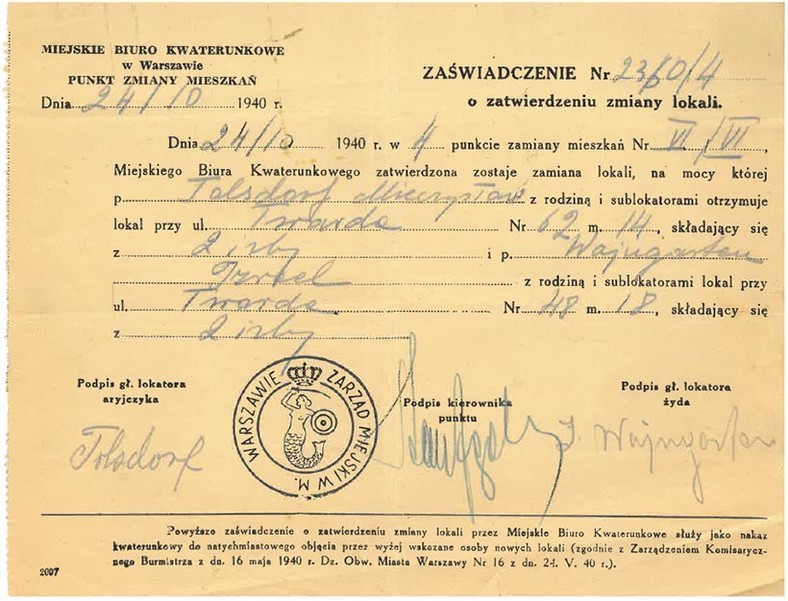 MIEJSKIE BIURO KWATERUNKOWE
w Warszawie
PUNKT ZMIANY MIESZKAŃ
Dnia 24/10 1940 r.
ZAŚWIADCZENIE Nr 2360/4
o zatwierdzeniu zmiany lokali.
Dnia 24/10 1940 r. w 4 punkcie zamiany mieszkań Nr VI/VI,
Miejskiego Biura Kwaterunkowego zatwierdzona zostaje zamiana lokali, na mocy której
p. Tolsdorf Mieczysław z rodziną i sublokatorami otrzymuje
lokal przy ul. Twarda Nr 62 m. 14, składający się
z 2 izby i p. Wajngarten
Izrael z rodziną i sublokatorami lokal przy
ul. Twarda Nr 48 m. 18, składający się
z 2 izby
Podpis gł. lokatora
aryjczyka
Tolsdorf
ZARZĄD MIEJSKI W M. WARSZAWIE
Podpis kierownika
punktu
Podpis gł. lokatora
żyda
I. Wajngarten
Powyższe zaświadczenie o zatwierdzeniu zmiany lokali przez Miejskie Biuro Kwaterunkowe służy jako nakaz
kwaterunkowy do natychmiastowego objęcia przez wyżej wskazane osoby nowych lokali (zgodnie z Zarządzeniem Komisarycz-
nego Burmistrza z dn. 16 maja 1940 r. Dz. Obw. Miasta Warszawy Nr 16 z dn. 24. V. 40 r.).
2007